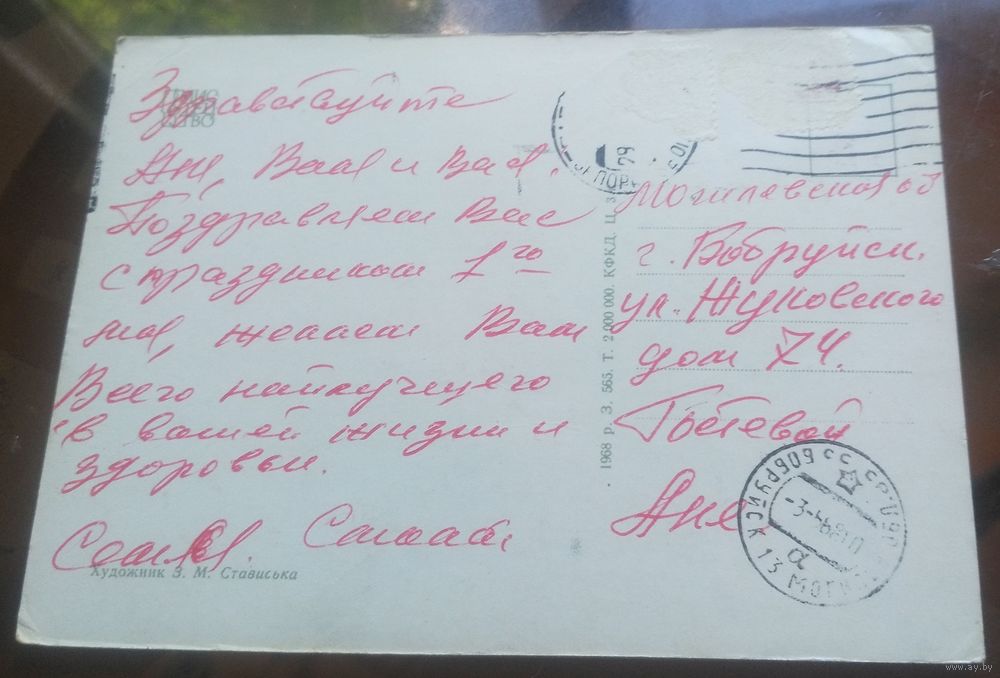 Здравствуйте
Аня, Валя и Вася.
Поздравляем Вас
с праздником 1го
мая, желаем Вам
Всего найлучшего
в вашей жизни и
здоровьи.
Семья
Художник З. М. Стависька
1968 р. З. 565. Т. 2 000 000. КФКД. Ц. 3
Могилевская об
г. Бобруйск.
ул. Жуковского
дом 74.
Ане
БОБРУЙСК 13 МОГИЛ
www.ay.by